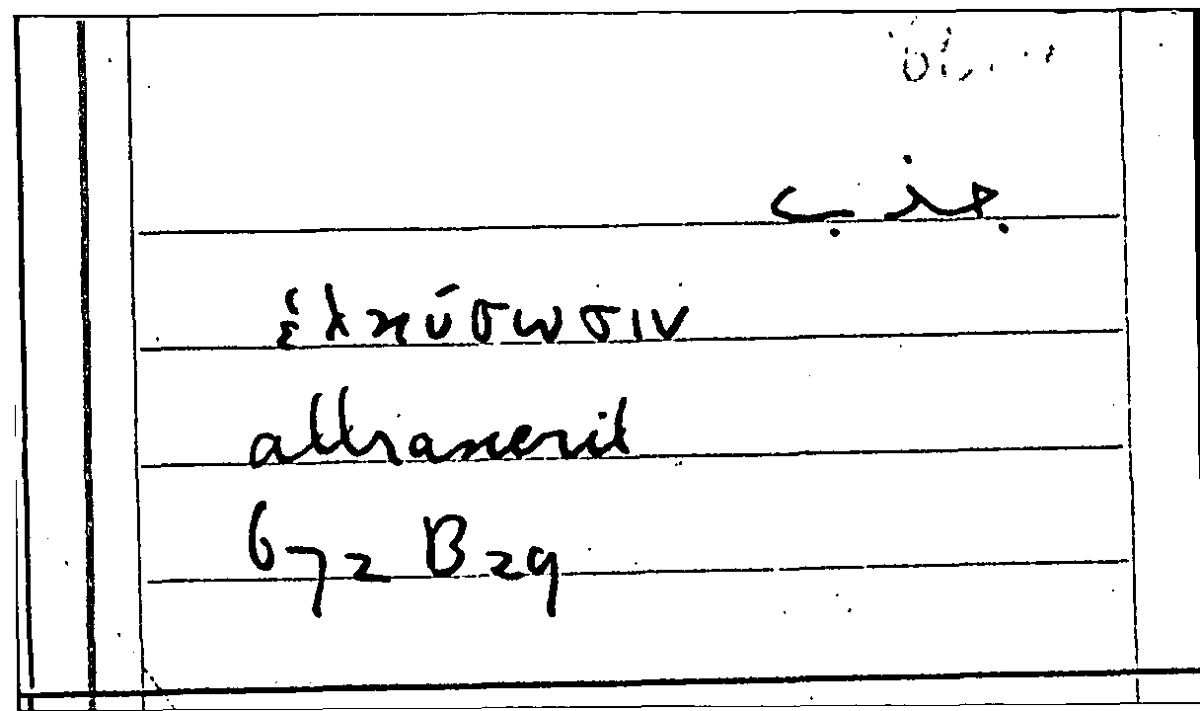 جذب
ἑλκύσωσιν
attraxerit
672 B 29